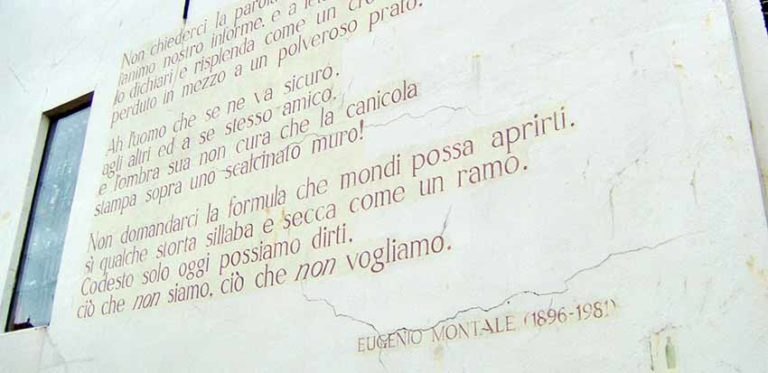 Non chiederci la parola
l'animo nostro informe, e a
lo dichiari e risplenda come un
perduto in mezzo a un polveroso prato.
Ah l'uomo che se ne va sicuro,
agli altri ed a se stesso amico,
e l'ombra sua non cura che la canicola
stampa sopra uno scalcinato muro!
Non domandarci la formula che mondi possa aprirti.
sì qualche storta sillaba e secca come un ramo.
Codesto solo oggi possiamo dirti.
ciò che non siamo, ciò che non vogliamo.
EUGENIO MONTALE (1896-1981)